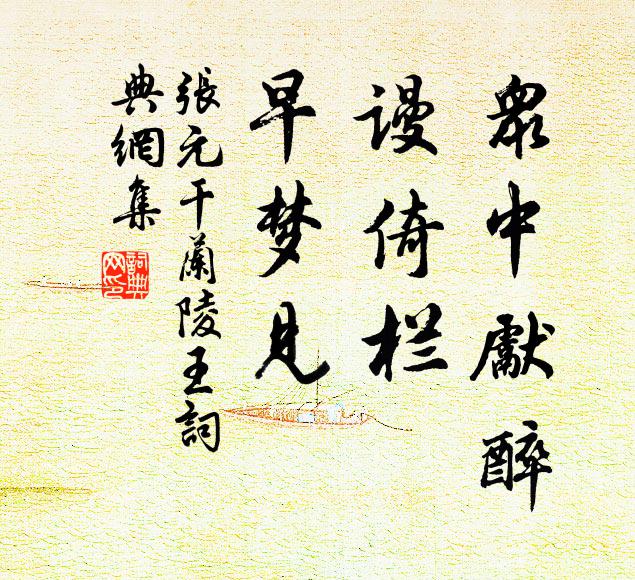 眾中獻醉
謾倚栏
早梦见
張元干蘭陵王詞
典網集
詞典网印